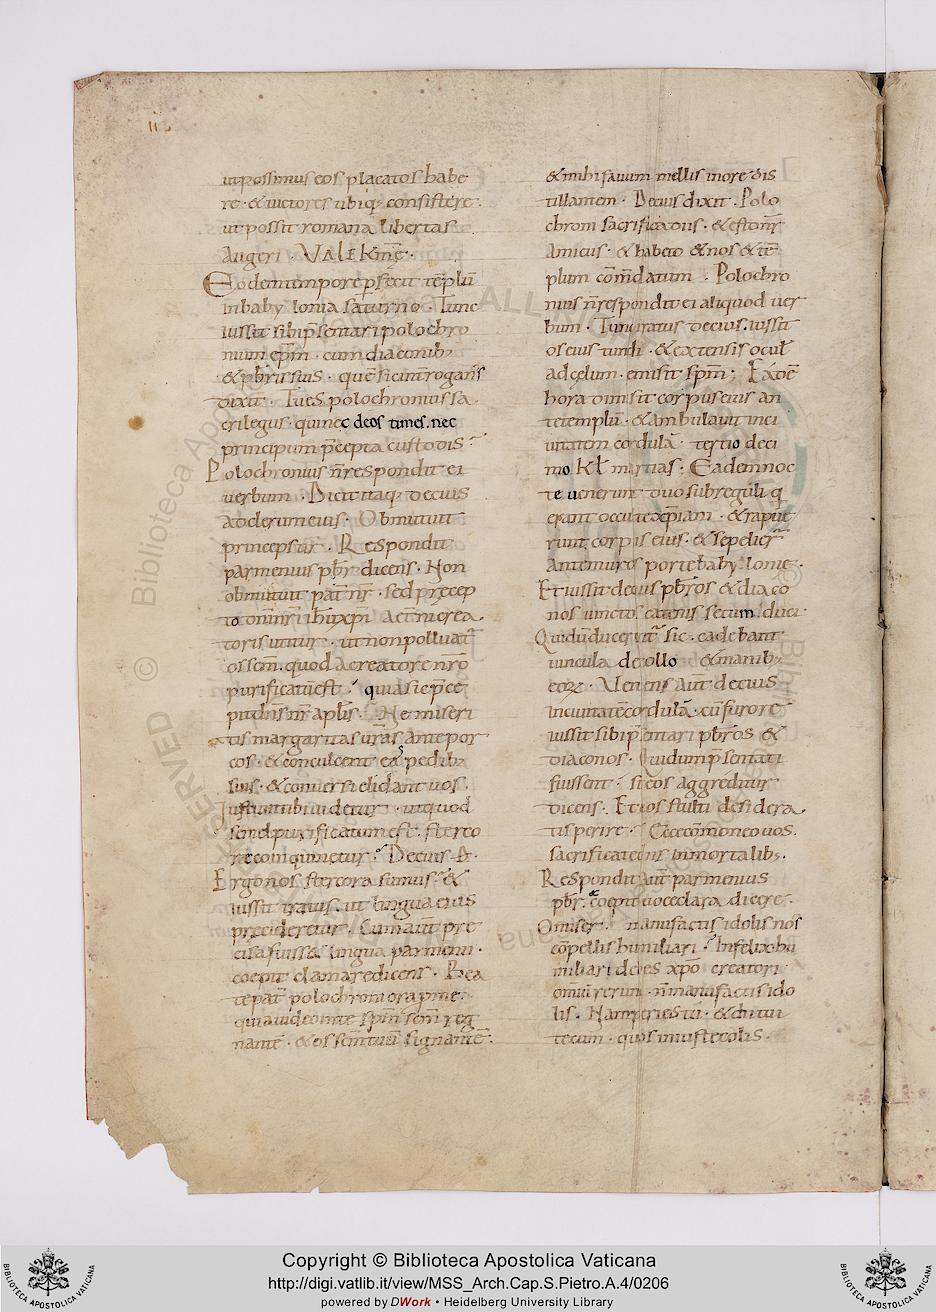 utpossimus eos placatos habe
re · & uictores tibiq; consistere ·
ut possit romana libertas
Augeri · VALE kmē ·
Eodem tempore p̄fecit tēplū
inbabylonia saturno · Tunc
iussit sibi p̄sentari polochro
nium ep̄m · cum diaconib;
& p̄bris suis · quē sic int̄rogans
dixit · Tu es polochronius sa
crilegus · qui nec deos times. nec
principum p̄cepta custodis
Polochronius n̄ respondit ei
uerbum · Dicit itaq; decius
ad clerum eius · Obmutuit
princeps ur̄ · Respondit
parmenius p̄br dicens · Non
obmutuit pat̄ nr̄ · sed precep
to
toris utitur · ut non polluat̄
os sc̄m · quod a creatore nr̄o
purificatū est · quia sic p̄ce
pit dn̄s nr̄ apl̄is · Ne miseri
tis margaritas ur̄as ante por
cos · & conculcent eas pedib;
suis · & conuersi elidant uos
Iustū tibi uidetur · ut quod
semel purificatum est · sterco
re coinquinetur · Decius d̄ ·
Ergo nos stercora sumus · &
iussit ut lingua eius
precideretur · Cum aut̄ pre
cisa fuiss& lingua parmenii ·
coepit clamare dicens · Bea
te pat̄ polochroni ora p me ·
quia uideo in te sp̄m sc̄m reg
nante · & os sc̄m tuū signante ·
& mihi fauum mellis in ore dis
tillantem · Decius dixit · Polo
chroni sacrifica diis · & esto nr̄
Amicus · & habeto & nos & tē
plum com̄datum · Polochro
nius n̄ respondit ei aliquod uer
bum · Tunc iratus decius. iussit
os eius tundi · & extensis ocul̄
ad celum · emisit sp̄m · Eadē
hora dimisit corpus eius an
te templū · & ambulauit in ci
uitatem cordulā · tertio deci
mo Kl̄ martias · Eadem noc
te uenerunt duo subreguli q
erant occulte xp̄iani · & rapue
runt corpus eius · & sepelier̄
Ante muros porte babylonie ·
Et iussit decius p̄bros & diaco
nos uinctos catenis secum duci ·
Qui dū ducerent̄ sic · cadebant
uincula de collo & manib;
eoꝝ · Veniens aut̄ decius
in ciuitatē cordulā · cū furore
iussit sibi p̄sentari p̄bros &
diaconos · Qui dum p̄sentati
fuissent · sic eos aggreditur
dicens · Et uos stulti desidera
tis perire · Ecce com̄oneo uos ·
sacrificate diis inmortalib; ·
Respondit aut̄ parmenius
p̄br · & coepit uoce clara dicere ·
O miser manufactis idolis nos
cōpellis humiliari · Infelix hu
miliari debes xp̄o creatori
om̄iū rerum · n̄ manufactis ido
lis · Nam peries tu · & hii tui
tecum · quos iniuste colis ·
Copyright © Biblioteca Apostolica Vaticana
http://digi.vatlib.it/view/MSS_Arch.Cap.S.Pietro.A.4/0206
powered by DWork • Heidelberg University Library